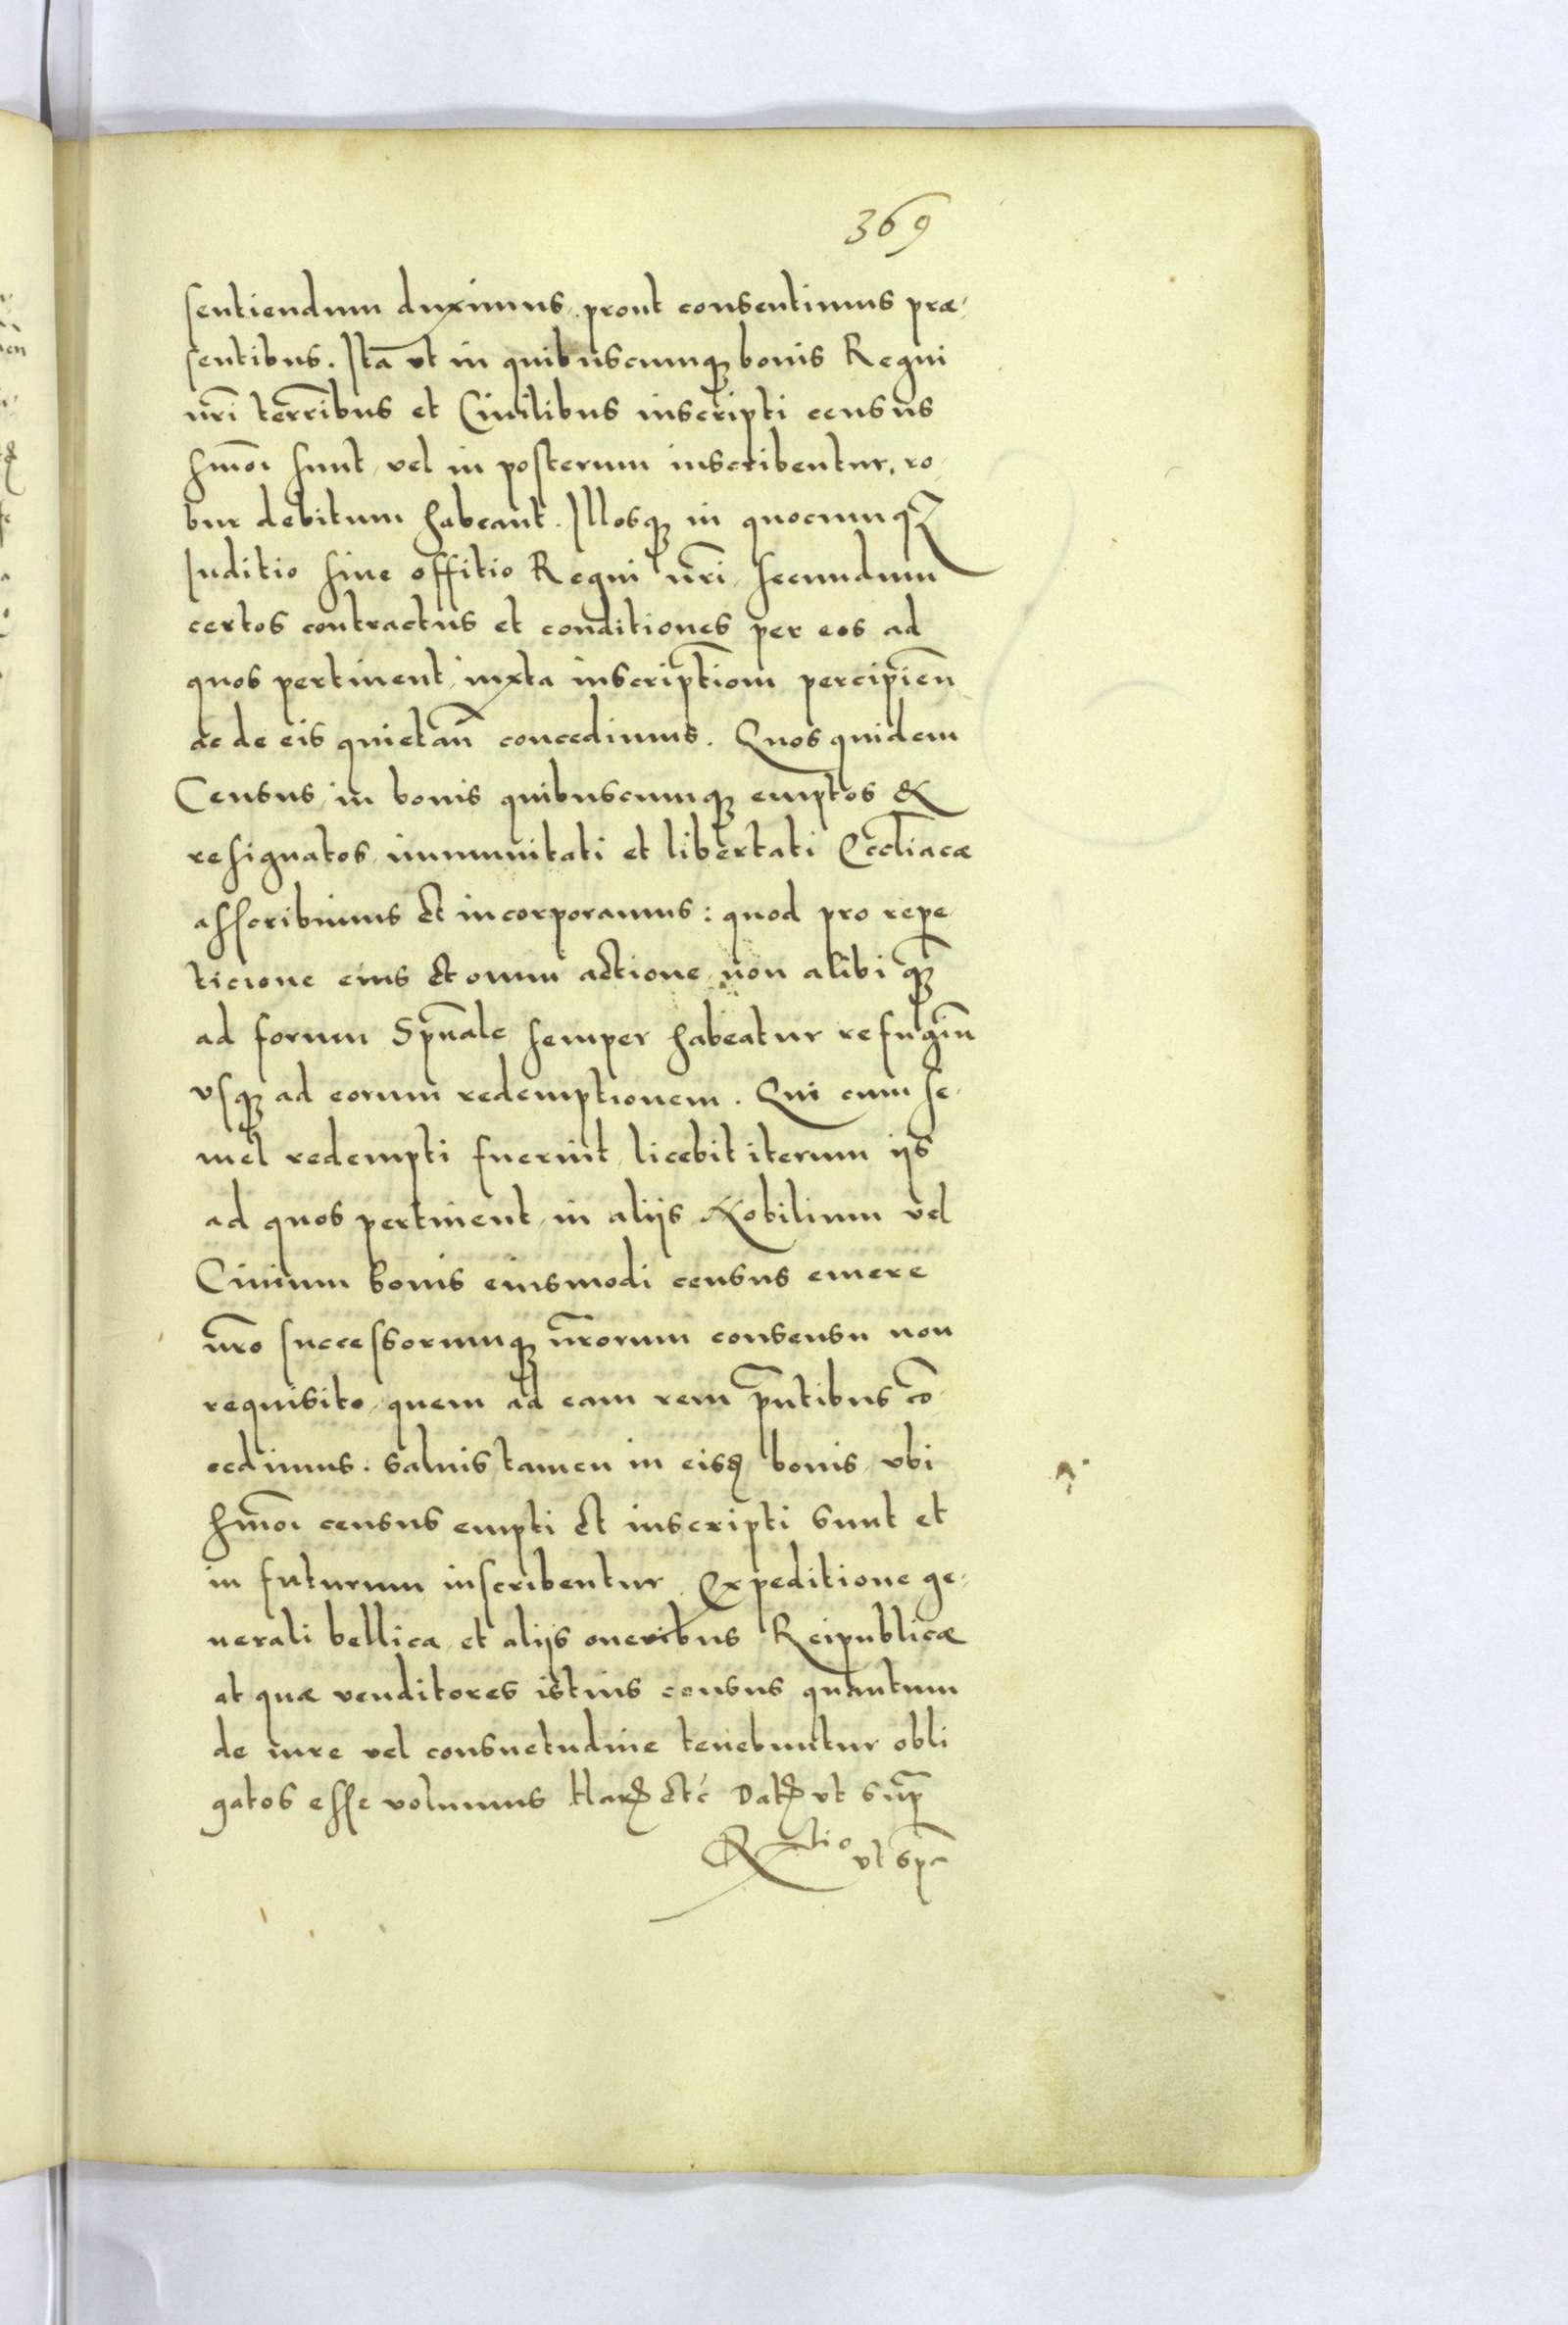 369
sentiendum duximus, prout consentimus præ-
sentibus. Ita ut in quibuscumq bonis Regni
nr̄i terr̄ibus et Ciuilibus inscripti census
hmōi sunt, vel in posterum inscribentur, ro-
bur debitum habeant. Illosq in quocumq
Juditio siue offitio Regni nr̄i, secundum
certos contractus et conditiones per eos ad
quos pertinent, iuxta inscriptiom̄ percipien̄
ac de eis quietan̄ concedimus. Quos quidem
Census, in bonis quibuscumq emptos &
resignatos, immunitati et libertati Eccl̄iacæ
asscribimus et incorporamus: quod pro repe-
ticione eius et omni actione, non alibi q̄
ad forum Spūale semper habeatur refugiū
vsq ad eorum redemptionem. Qui cum se-
mel redempti fuerint, licebit iterum ijs
ad quos pertinent, in alijs Nobilium vel
Ciuium bonis eiusmodi census emere
nr̄o successorumq nr̄orum consensu non
requisito, quem ad eam rem pn̄tibus cō-
cedimus. saluis tamen in eisd bonis, vbi
hmōi census empti et inscripti sunt et
in futurum inscribentur, Expeditione ge-
nerali bellica, et alijs oneribus Reipublicæ
at quæ venditores istius census quantum
de iure vel consuetudine tenebuntur obli
gatos esse volumus Har etc Dat vt supr̄
R tio vt spr̄a